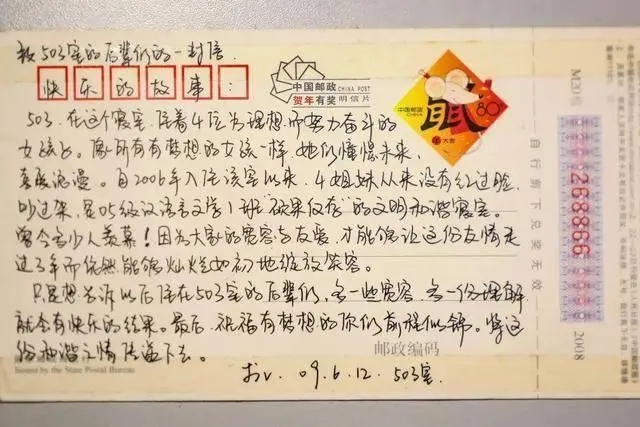 致503室的后辈们的一封信
快乐的故事:
中国邮政 CHINA POST
贺年有奖 明信片
中国邮政 CHINA
80
大吉
503.在这个寝室,住着4位为理想而努力奋斗的
女孩。像所有有梦想的女孩一样,她们憧憬未来,
喜爱浪漫。自2006年入住该室以来,4姐妹从来没有红过脸,
吵过架,是05级汉语言文学1班“硕果仅存”的文明和谐寝室。
曾令多少人羡慕!因为大家的宽容与友爱,才能够让这份友情走
过3年而依然能够灿烂如初地绽放笑容。
只是想告诉以后住在503室的后辈们,多一些宽容,多一份理解
就会有快乐的结果。最后,祝福有梦想的你们前程似锦。将这
份和谐之情传递下去。
邮政编码
Issued by the State Postal Bureau
09.6.12. 503室.
自行剪下兑奖无效
268866
2008